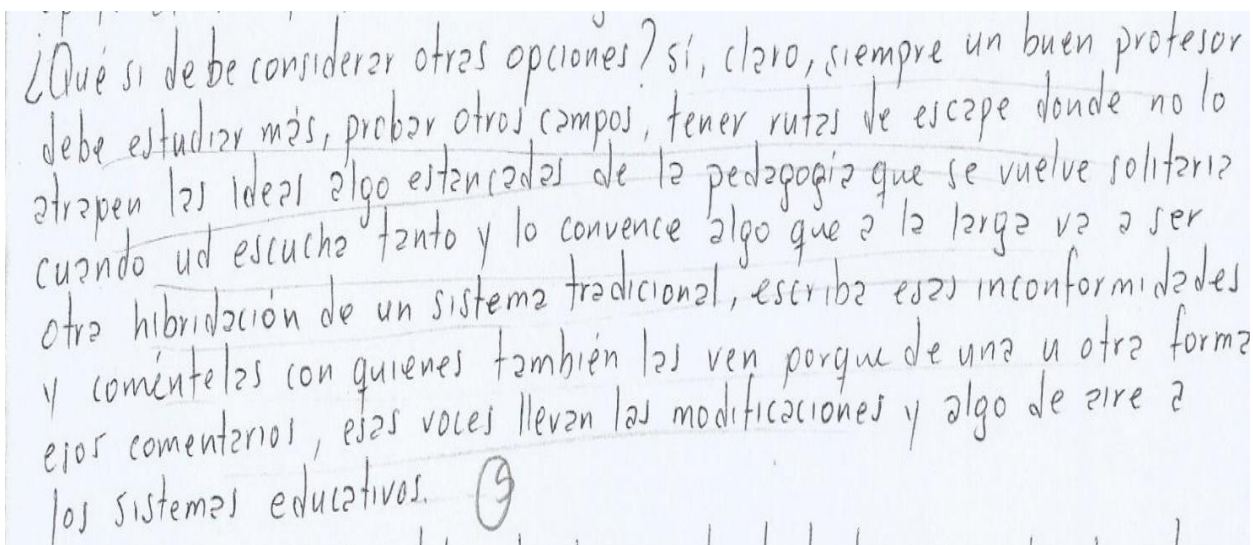 ¿Qué si debe considerar otras opciones? sí, claro, siempre un buen profesor
debe estudiar más, probar otros campos, tener rutas de escape donde no lo
atrapen las ideas algo estancadas de la pedagogía que se vuelve solitaria
cuando ud escucha tanto y lo convence algo que a la larga va a ser
otra hibridación de un sistema tradicional, escriba esas inconformidades
y coméntelas con quienes también las ven porque de una u otra forma
esos comentarios, esas voces llevan las modificaciones y algo de aire a
los sistemas educativos. 9